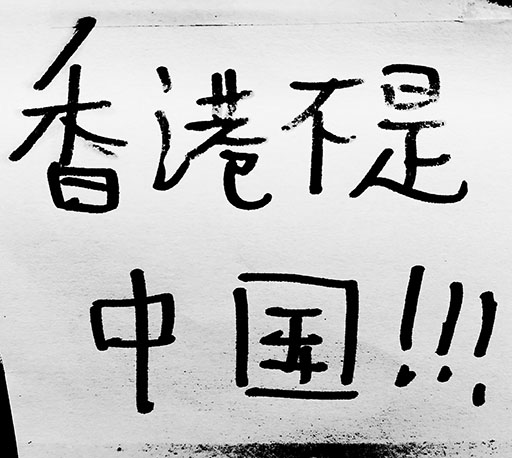 香港不是
中国!!!